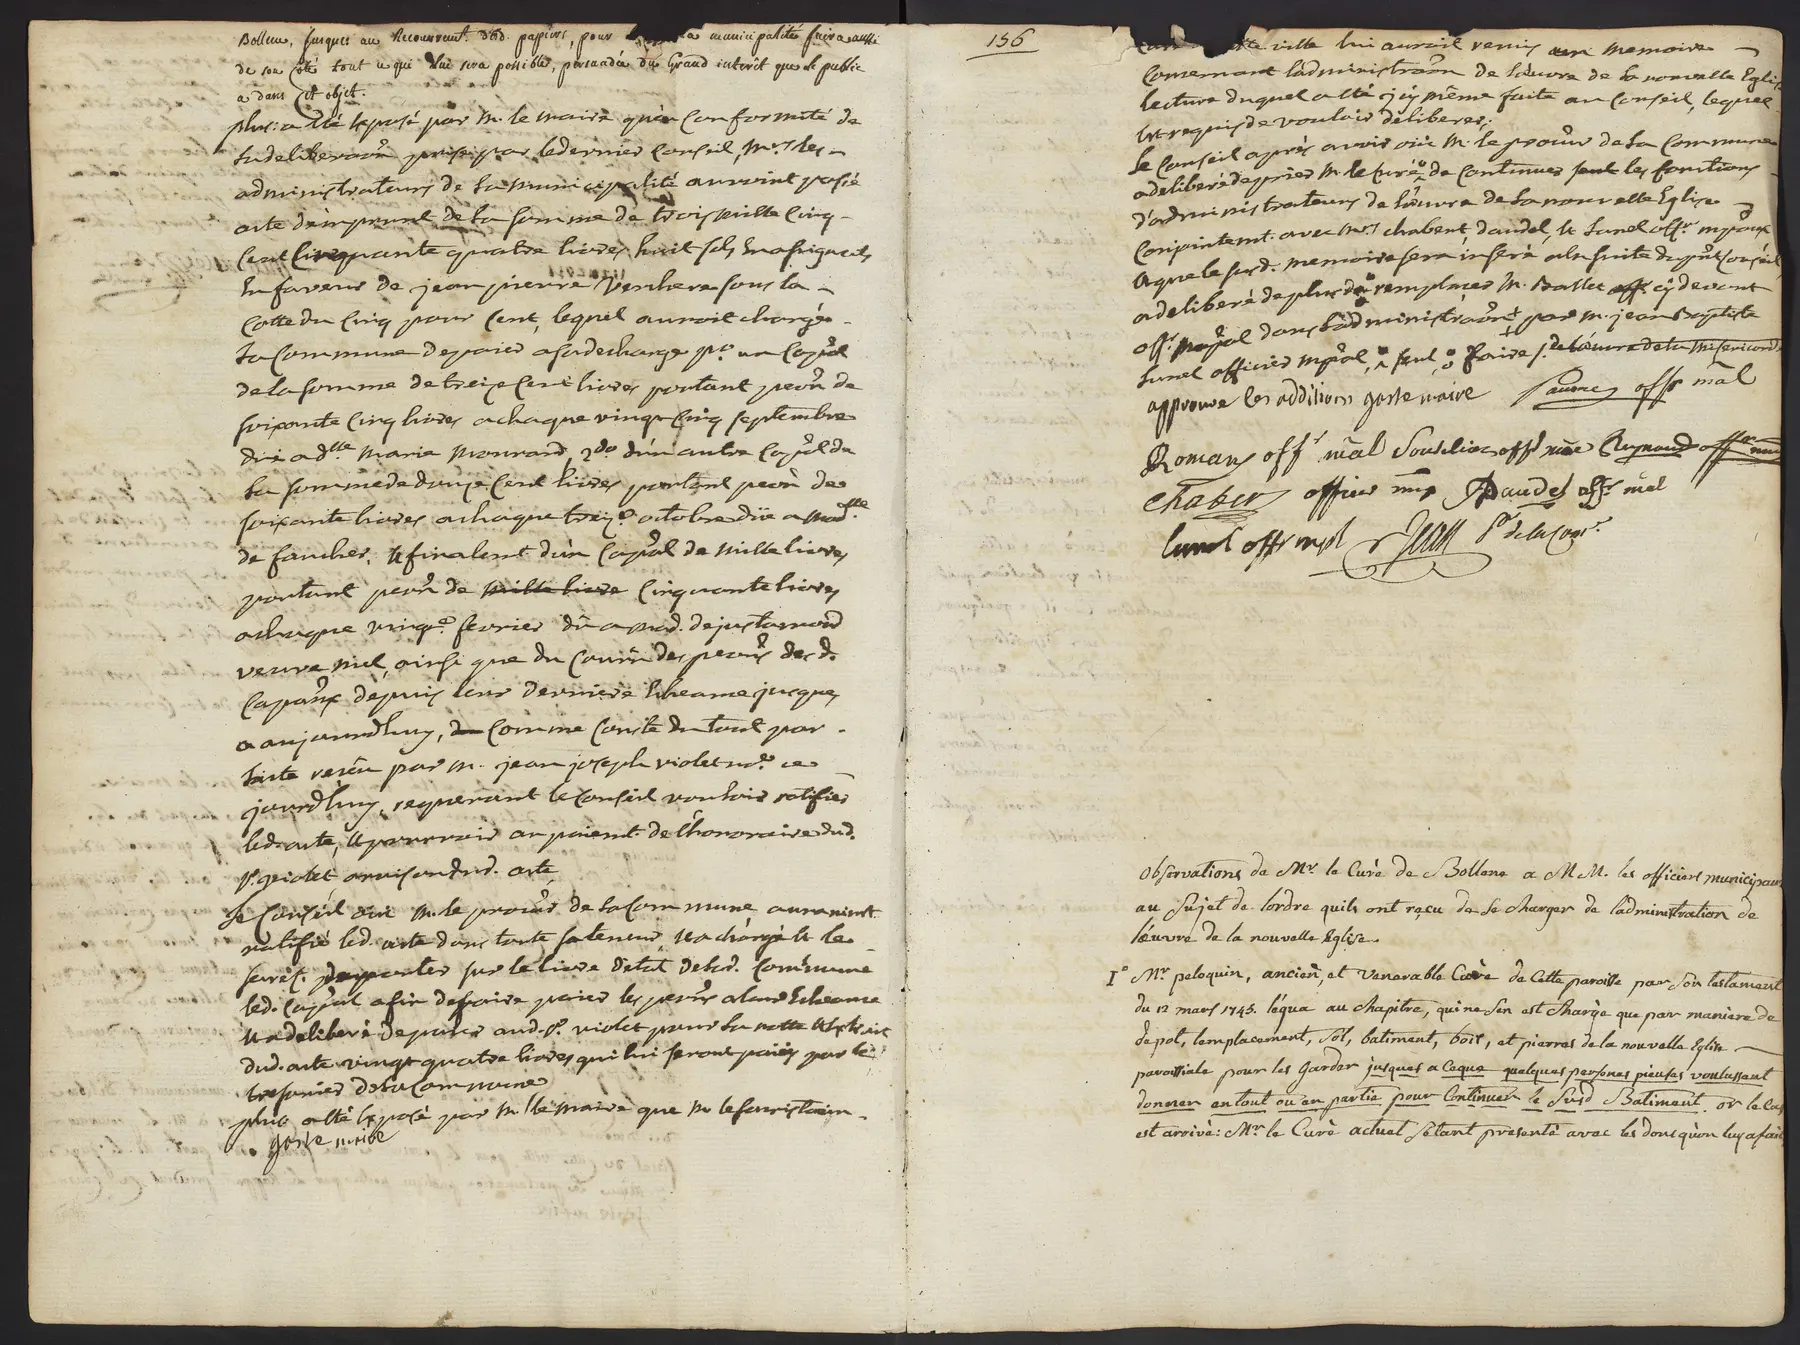 Bollene, jusques au Recouvremt. desd. papiers, pour municipalité faira aussi
de son côté tout ce qui lui sera possible, persuadée du Grand interêt que le public
a dans Cet objet.
plus: a été exposé par M. le maire qu'en Conformité de
la deliberaon prise par le dernier Conseil, Mrs les
administrateurs de la municipalité auroint passé
acte d'emprunt de la somme de trois mille Cinq
Cent Cinquante quatre livres huit sols
En faveur de jean pierre Verchere sous la
Cotte du Cinq pour Cent, lequel auroit chargé
la Commune de paier a sa decharge po. un Capal
de la somme de treize Cent livres portant peon de
soixante Cinq livres a chaque vingt Cinq septembre
due a dlle Maria Monrard, 2do d'un autre Capal de
la somme de douze Cent livres portant peon de
soixante livres a chaque treize octobre düe a Madlle
de faucher, et finalemt d'un Capal de Mille livres
portant peon de mille livre Cinquante livres
a chaque vingt fevrier dû a mad. de justamond
veuve niel, ainsi que du Couru des peons des d.
Capaux depuis leur derniere Echeance jusques
a aujourdhuy, de Comme Conste du tout par
l'acte reseu par M. jean joseph violet nre. ce
jourdhuy, requerant le Conseil vouloir ratifier
led. acte, et pourvoir au paiemt. de l'honoraire dud.
Sr. Violet, a raison dud. acte,
Le Conseil oui M. le procur de la Commune a unanimt
ratifié led. acte dans toute sa teneur, et a chargé le
secret. de porter sur le livre d'etat de lad. Commune
led. Capal afin de faire paier les peons a leur Echeance
et a deliberé de paier aud. Sr. violet pour la notte et Extrait
dud. acte vingt quatre livres qui lui seront paiés par le
tresorier de la Commune
plus a été Exposé par M. le maire que M. le
gaste maire
156
ville lui auroit remis un Memoire
Concernant l'administraon de l'œuvre de la nouvelle Eglise
lecture duquel a été icy même faite au Conseil, lequel
est requis de vouloir deliberer;
Le Conseil après avoir oüi M. le procur de la Commune
a deliberé de prier M. le Curé de Continuer seul les fonctions
d'administrateurs de l'œuvre de la nouvelle Eglise
Conjointemt. avec Mrs chabert, daudel, et Lunel offrs. mpaux
Que le susd. memoire sera inseré a la suite du pnt Conseil
a deliberé de plus de remplacer M. Ballet offr. cy devant
offr. mpal dans l'administraon par M. jean Baptiste
Lunel officier mpal, seul, o faire s. de l'œuvre de la Misericorde
approuve les additions gaste maire offr mãl
Romans offr mãl Souchier offr Reynaud offr mu
Chabert officier mu Daudel offr mãl
Lunel offr mpl Jean Pr de la Com.
observations de Mr. le Curè de Bollene a MM. les officiers municipaux
au Sujet de lordre quils ont reçu de Se charger de ladministration de
lœuvre de la nouvelle Eglise.
1° Mr. peloquin, ancien, et venerable Curè de Cette paroisse par Son testament
du 12 mars 1745. légua au chapitre, qui ne Sen est Chargè que par maniere de
depot, lemplacement, Sol, batiment, bois, et pierres de la nouvelle Eglise
paroissiale pour les Garder jusques a Ceque quelques persones pieuses voulussent
donner en tout ou en partie pour Continuer le Susd Batiment. or le Cas
est arrivè: Mr. le Curè actuel Sétant presentè avec les dons qu'on luy a fait